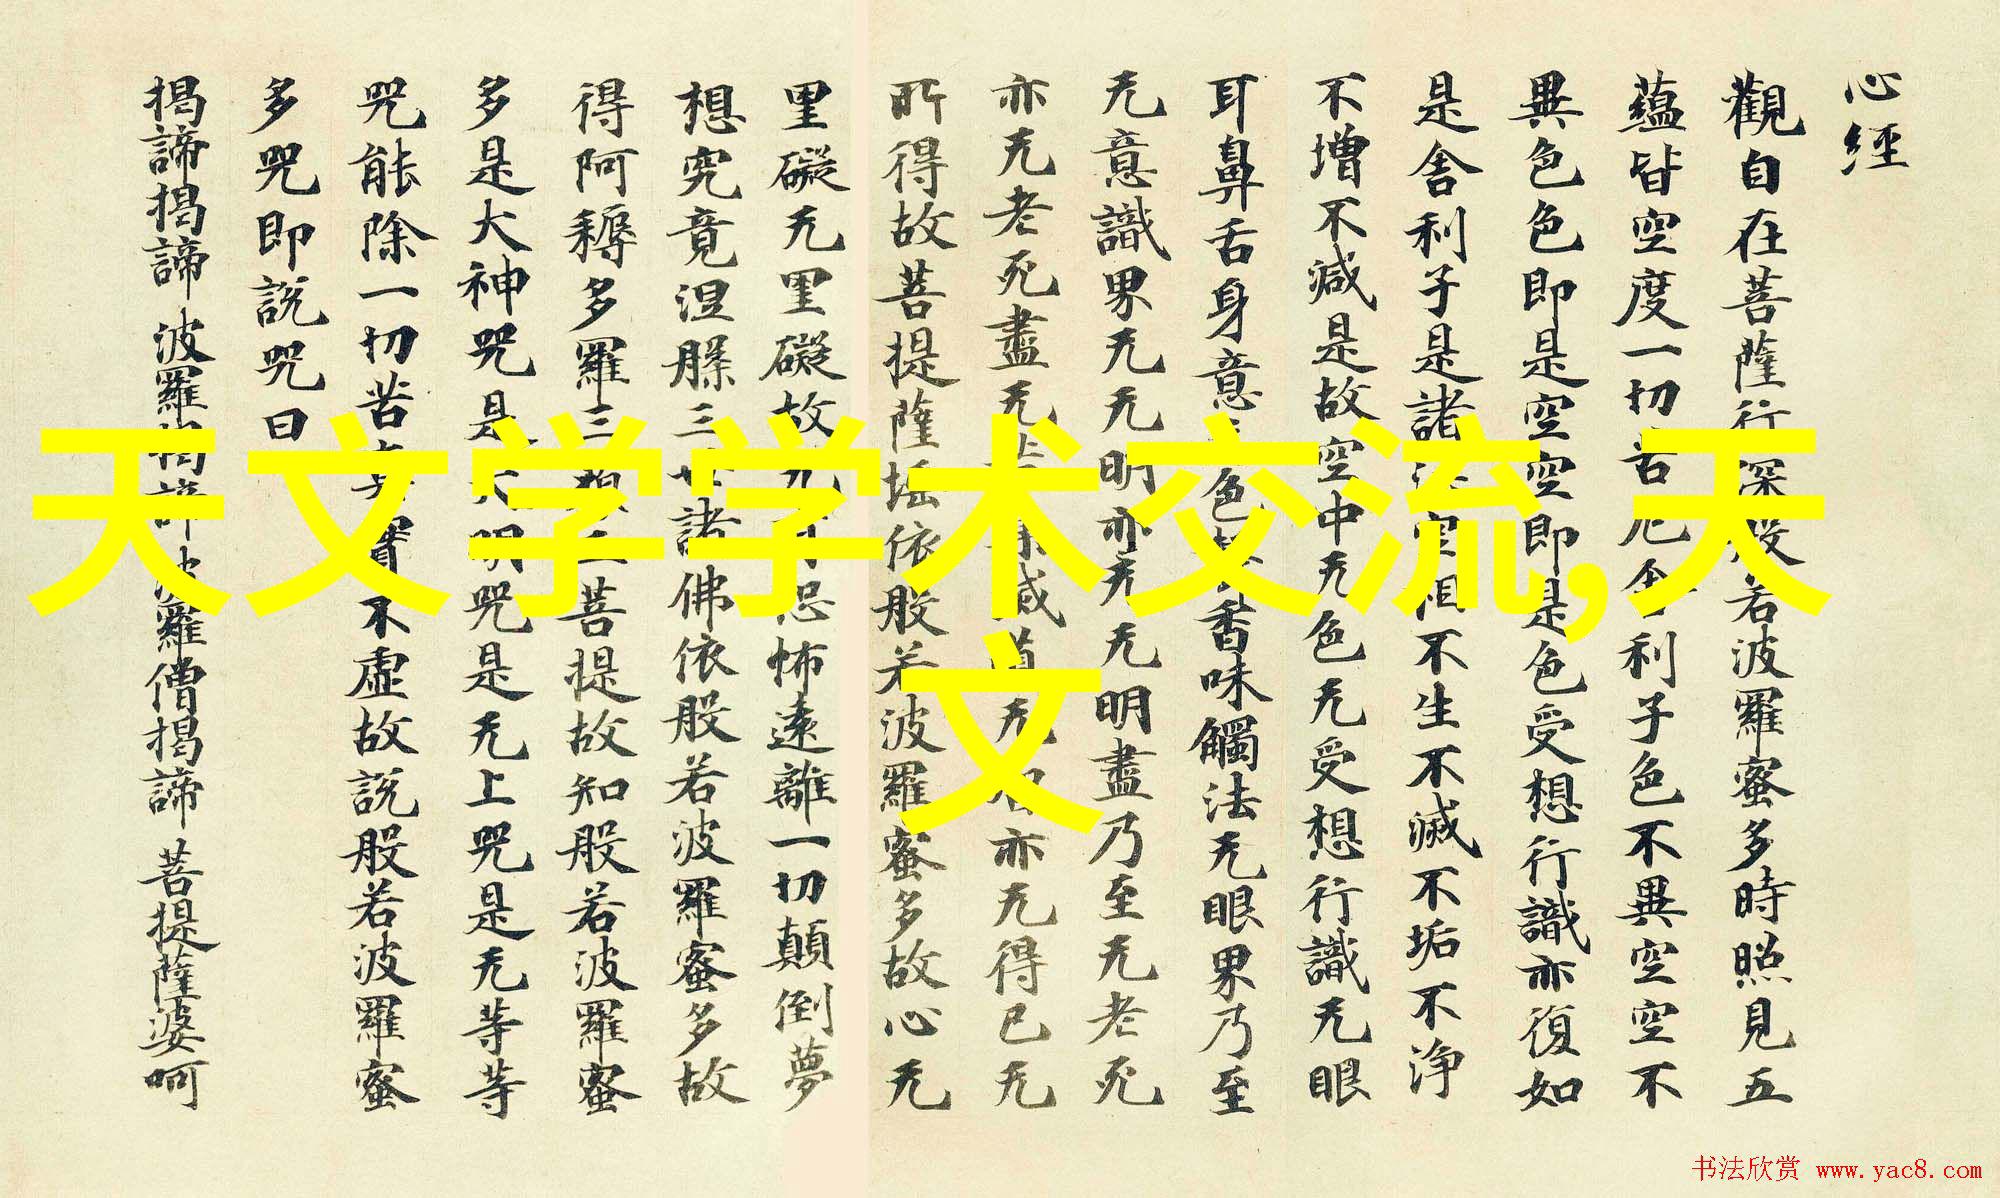 心經
觀自在菩薩行深般若波羅蜜多時照見五
蘊皆空度一切苦厄舍利子色不異空空不
異色色即是空空即是色受想行識亦復如
是舍利子是諸法空相不生不滅不垢不淨
不增不減是故空中无色无受想行識无眼
耳鼻舌身意无色聲香味觸法无眼界乃至
无意識界无无明亦无无明盡乃至无老死
亦无老死盡无苦集滅道无智亦无得已无
所得故菩提薩埵依般若波羅蜜多故心无
罣礙无罣礙故无有恐怖遠離一切顛倒夢
想究竟涅槃三世諸佛依般若波羅蜜多故
得阿耨多羅三藐三菩提故知般若波羅蜜
多是大神咒是大明咒是无上咒是无等等
咒能除一切苦真實不虛故說般若波羅蜜
多咒即說咒曰
揭諦揭諦 波羅揭諦 波羅僧揭諦 菩提薩婆呵
天文学学术交流,天
文
书法欣赏 www.yac8.com